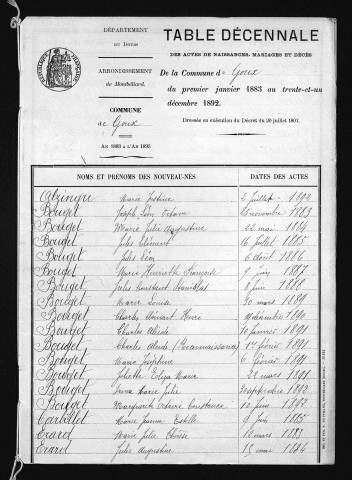 DÉPARTEMENT
DU DOUBS
ARRONDISSEMENT
de Montbéliard.
COMMUNE
de Goux
AN 1883 A L'AN 1893
TABLE DÉCENNALE
DES ACTES DE NAISSANCES, MARIAGES ET DÉCÈS
De la Commune de Goux
du premier janvier 1883 au trente-et-un
décembre 1892.
Dressée en exécution du Décret du 20 juillet 1807.
NOMS ET PRÉNOMS DES NOUVEAU-NÉS DATES DES ACTES
Marie Justine 2 Juillet 1892
Bouget Joseph Léon Octave 25 novembre 1883
Bouget Marie Julie Augustine 22 mai 1884
Bouget Jules Clément 16 Juillet 1885
Bouget Jules Léon 6 Août 1886
Bouget Marie Henriette Françoise 9 juin 1887
Bouget Jules Constant Stanislas 8 juin 1888
Bouget Marie Louise 30 mars 1889
Bouget Charles Henri décembre 1890
Bouget Charles Alcide 10 janvier 1891
Bouget Charles Alcide (Reconnaissance) 1er février 1891
Bouget Marie Joséphine 6 février 1891
Bouget Juliette Marie 22 mars 1891
Bouget Marie Julie 30 septembre 1892
Bouget Marguerite Constance 10 juin 1892
Marie Jeanne Estelle 9 juin 1885
Erard Marie Julie 12 mars 1883
Erard Jules Augustin 15 mai 1884